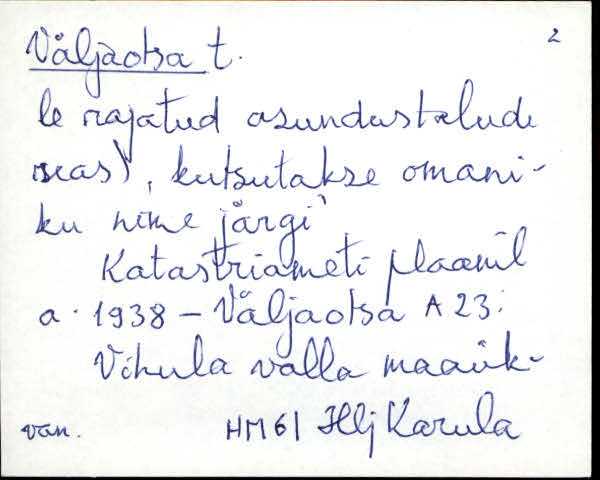 Väljaotsa t. 2
le rajatud asundustalude
seas), kutsutakse omani-
ku nime järgi
Katastriameti plaanil
a. 1938 – Väljaotsa A 23.
Vihula valla maaük-
van. HM 61 Hlj Karula